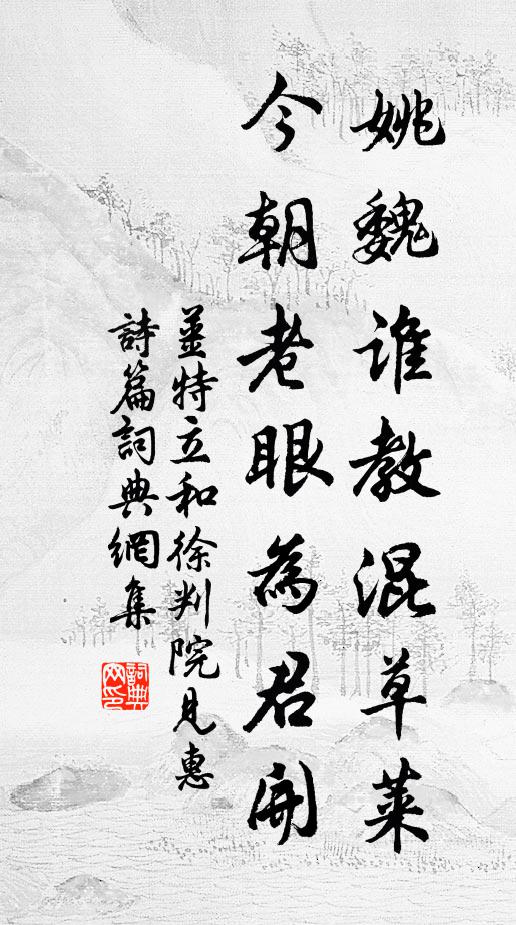 姚魏谁教混草莱
今朝老眼為君開
姜特立和徐判院見惠
詩篇詞典網集
詞典网印